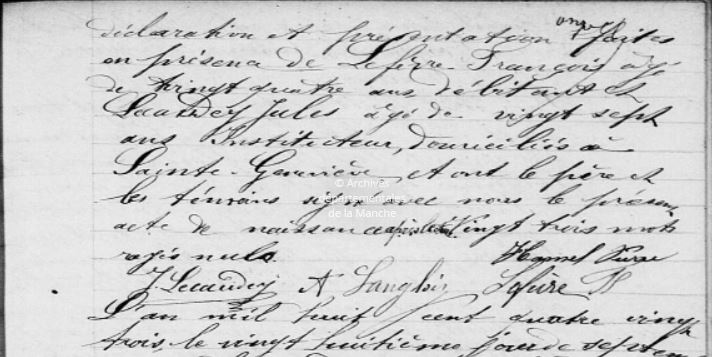 déclaration et présentation ont faites
en présence de Lefèvre François âgé
de vingt quatre ans débitant et
Lecaudey Jules âgé de vingt sept
ans Instituteur, domiciliés à
Sainte-Geneviève et ont le père et
les témoins signé avec nous le présent
acte de naissance après lecture Vingt trois mots
rayés nuls. Hamel
J. Lecaudey A Langlois Lefèvre
L'an mil huit cent quatre vingt
trois, le vingt huitième jour de septem
© Archives
départementales
de la Manche